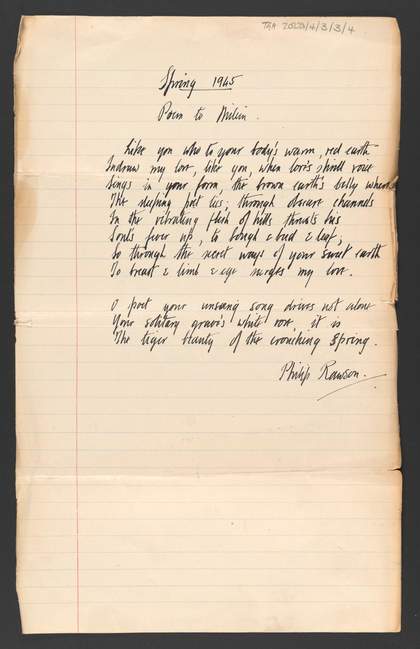 TGA 20223/4/3/3/4
Spring 1945
Poem to Mitzi.
Like you who to your body's warm, red earth
Indraw my love, like you, when love's shrill voice
Sings in your form, the brown earth's belly where
The sleeping poet lies; through obscure channels
In the vibrating flesh of hills thrusts his
Soul's fever up, to bough & bud & leaf;
So through the secret ways of your sweet earth
To breast & limb & eye surges my love.
O poet your unsung song drives not alone
Your solitary grave's white rose, it is
The tiger beauty of the crouching Spring.
Philip Rawson.